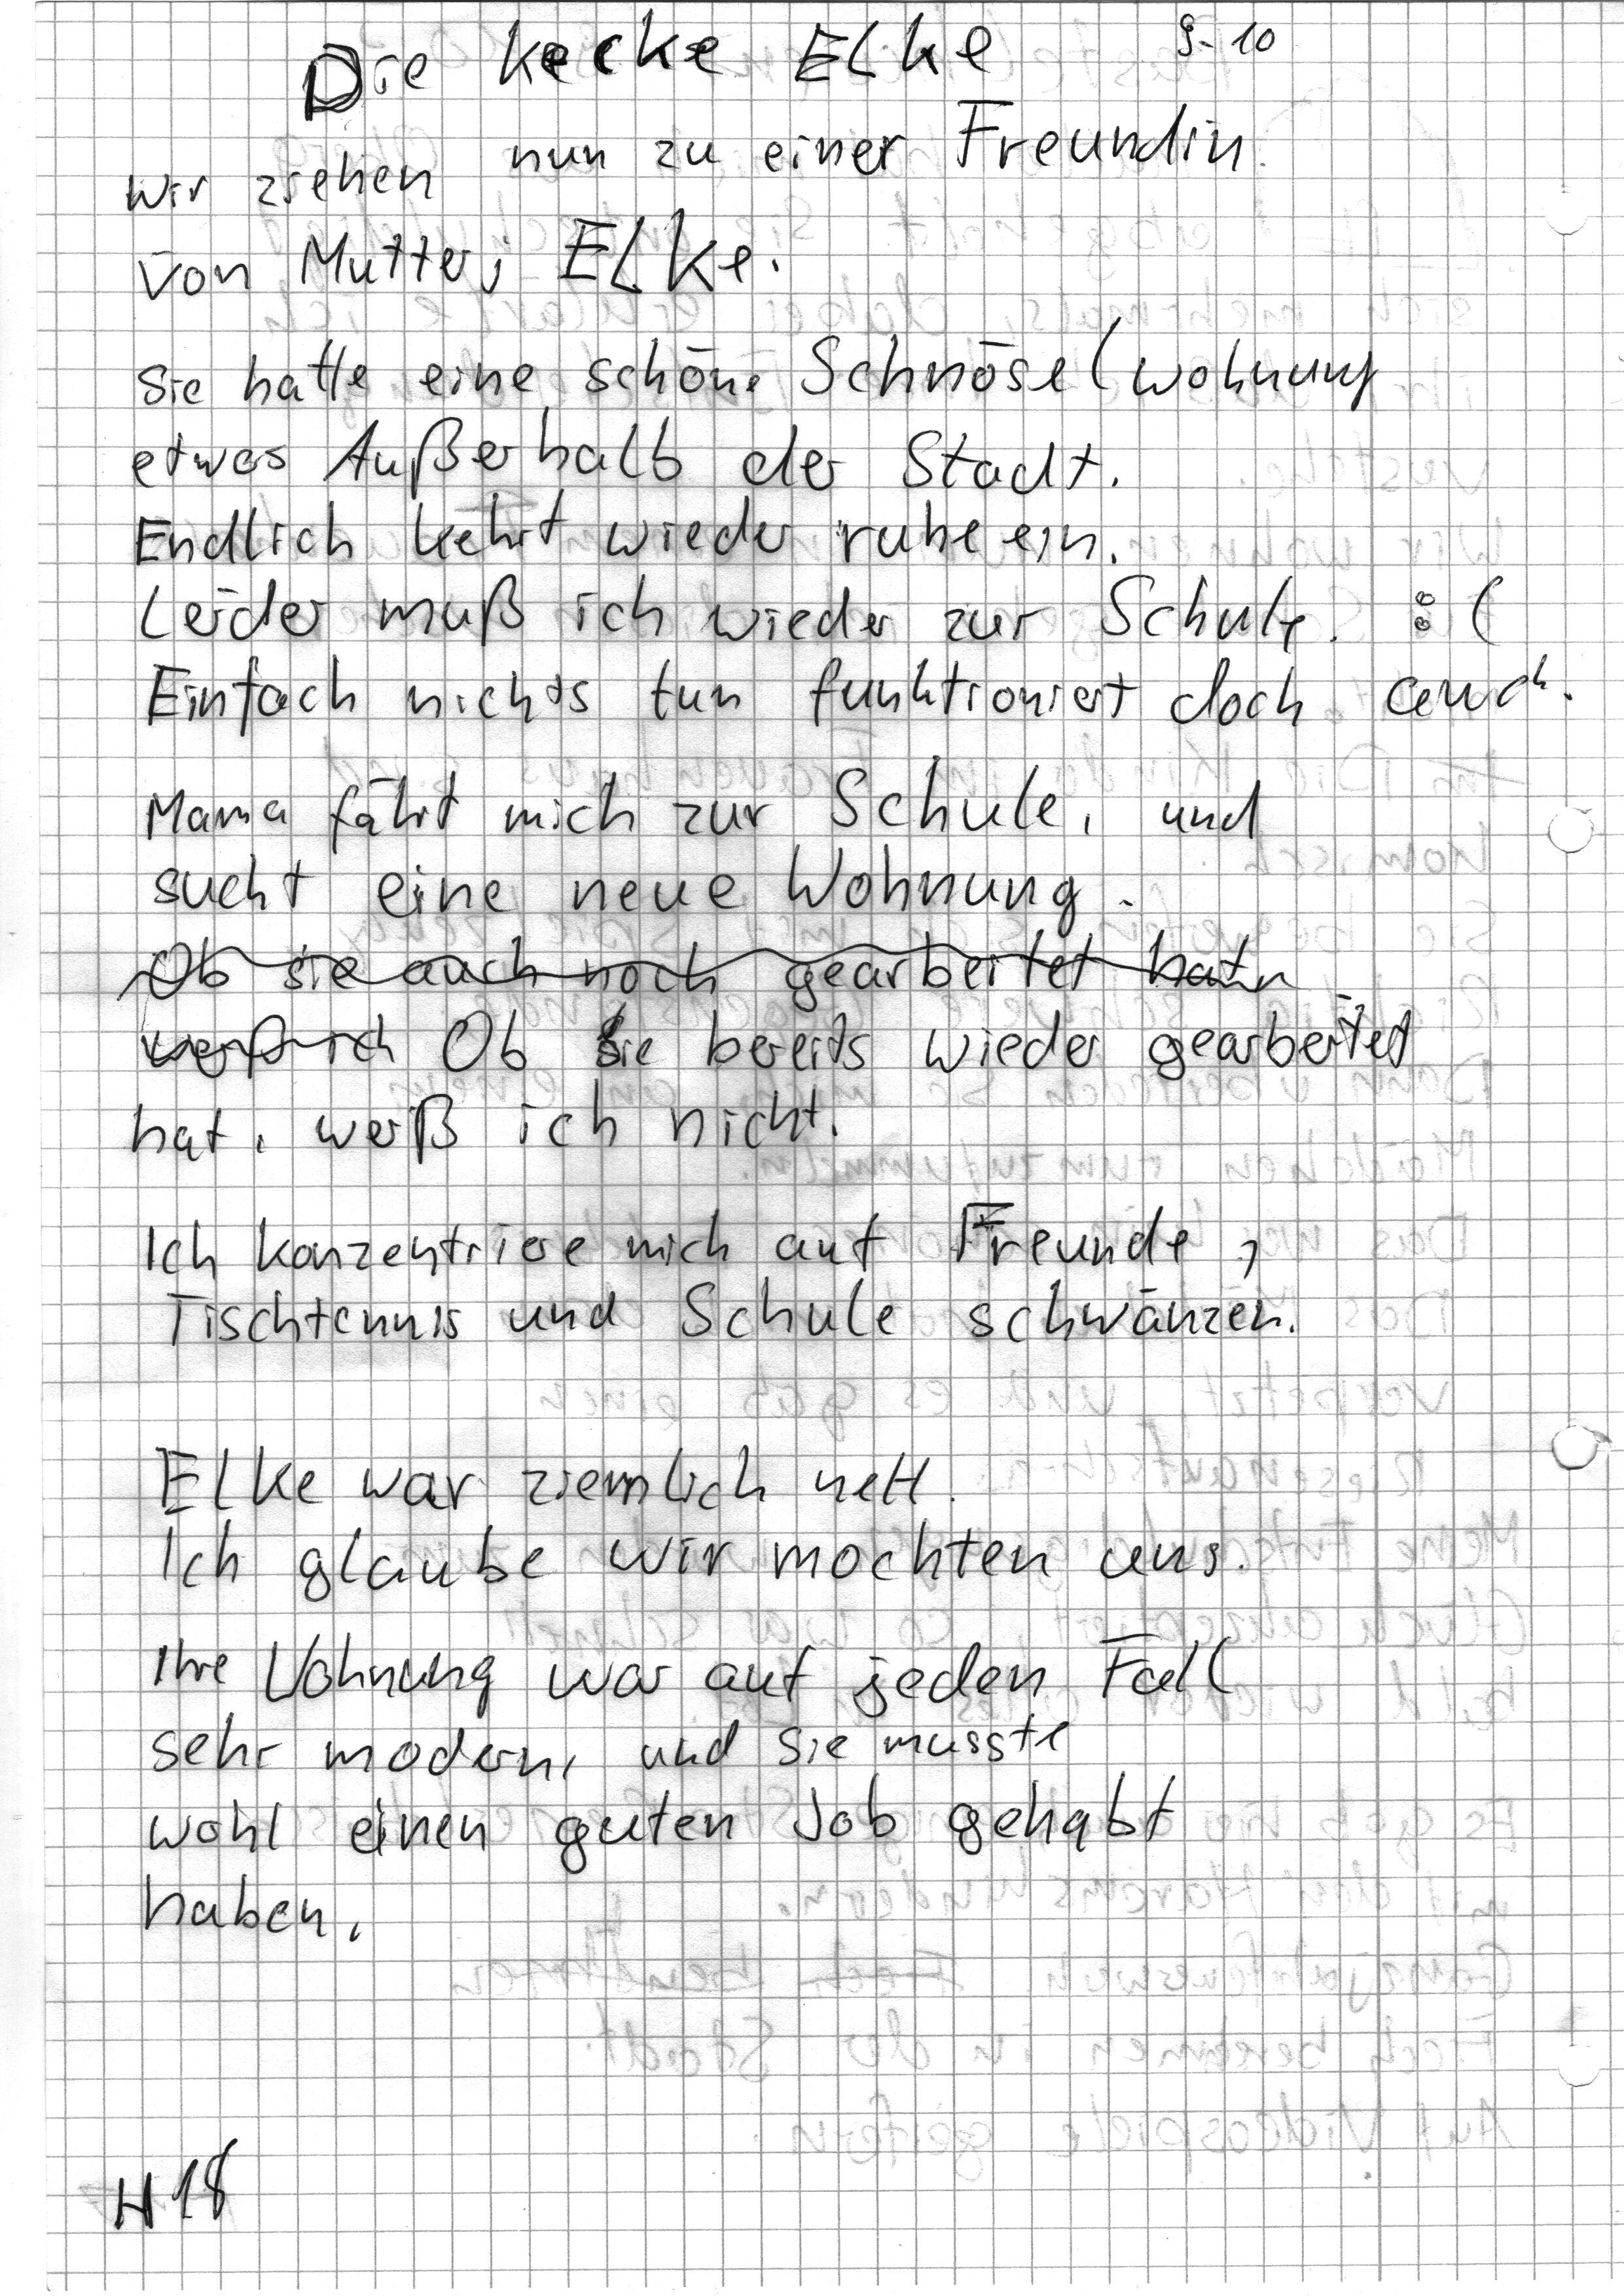 Die kecke Elke 9-10
wir ziehen nun zu einer Freundin
von Mutter; Elke.
Sie hatte eine schöne Schnösel wohnung
etwas Außerhalb der Stadt.
Endlich kehrt wieder ruhe ein.
Leider muß ich wieder zur Schule. :(
Einfach nichts tun funktioniert doch auch.
Mama fährt mich zur Schule, und
sucht eine neue Wohnung.
Ob sie auch noch gearbeitet hat
weiß ich Ob Sie bereits wieder gearbeitet
hat, weiß ich nicht.
Ich konzentriere mich auf Freunde,
Tischtennis und Schule schwänzen.
Elke war ziemlich nett.
Ich glaube wir mochten uns.
Ihre Wohnung war auf jeden Fall
sehr modern, und sie musste
wohl einen guten Job gehabt
haben.
H18